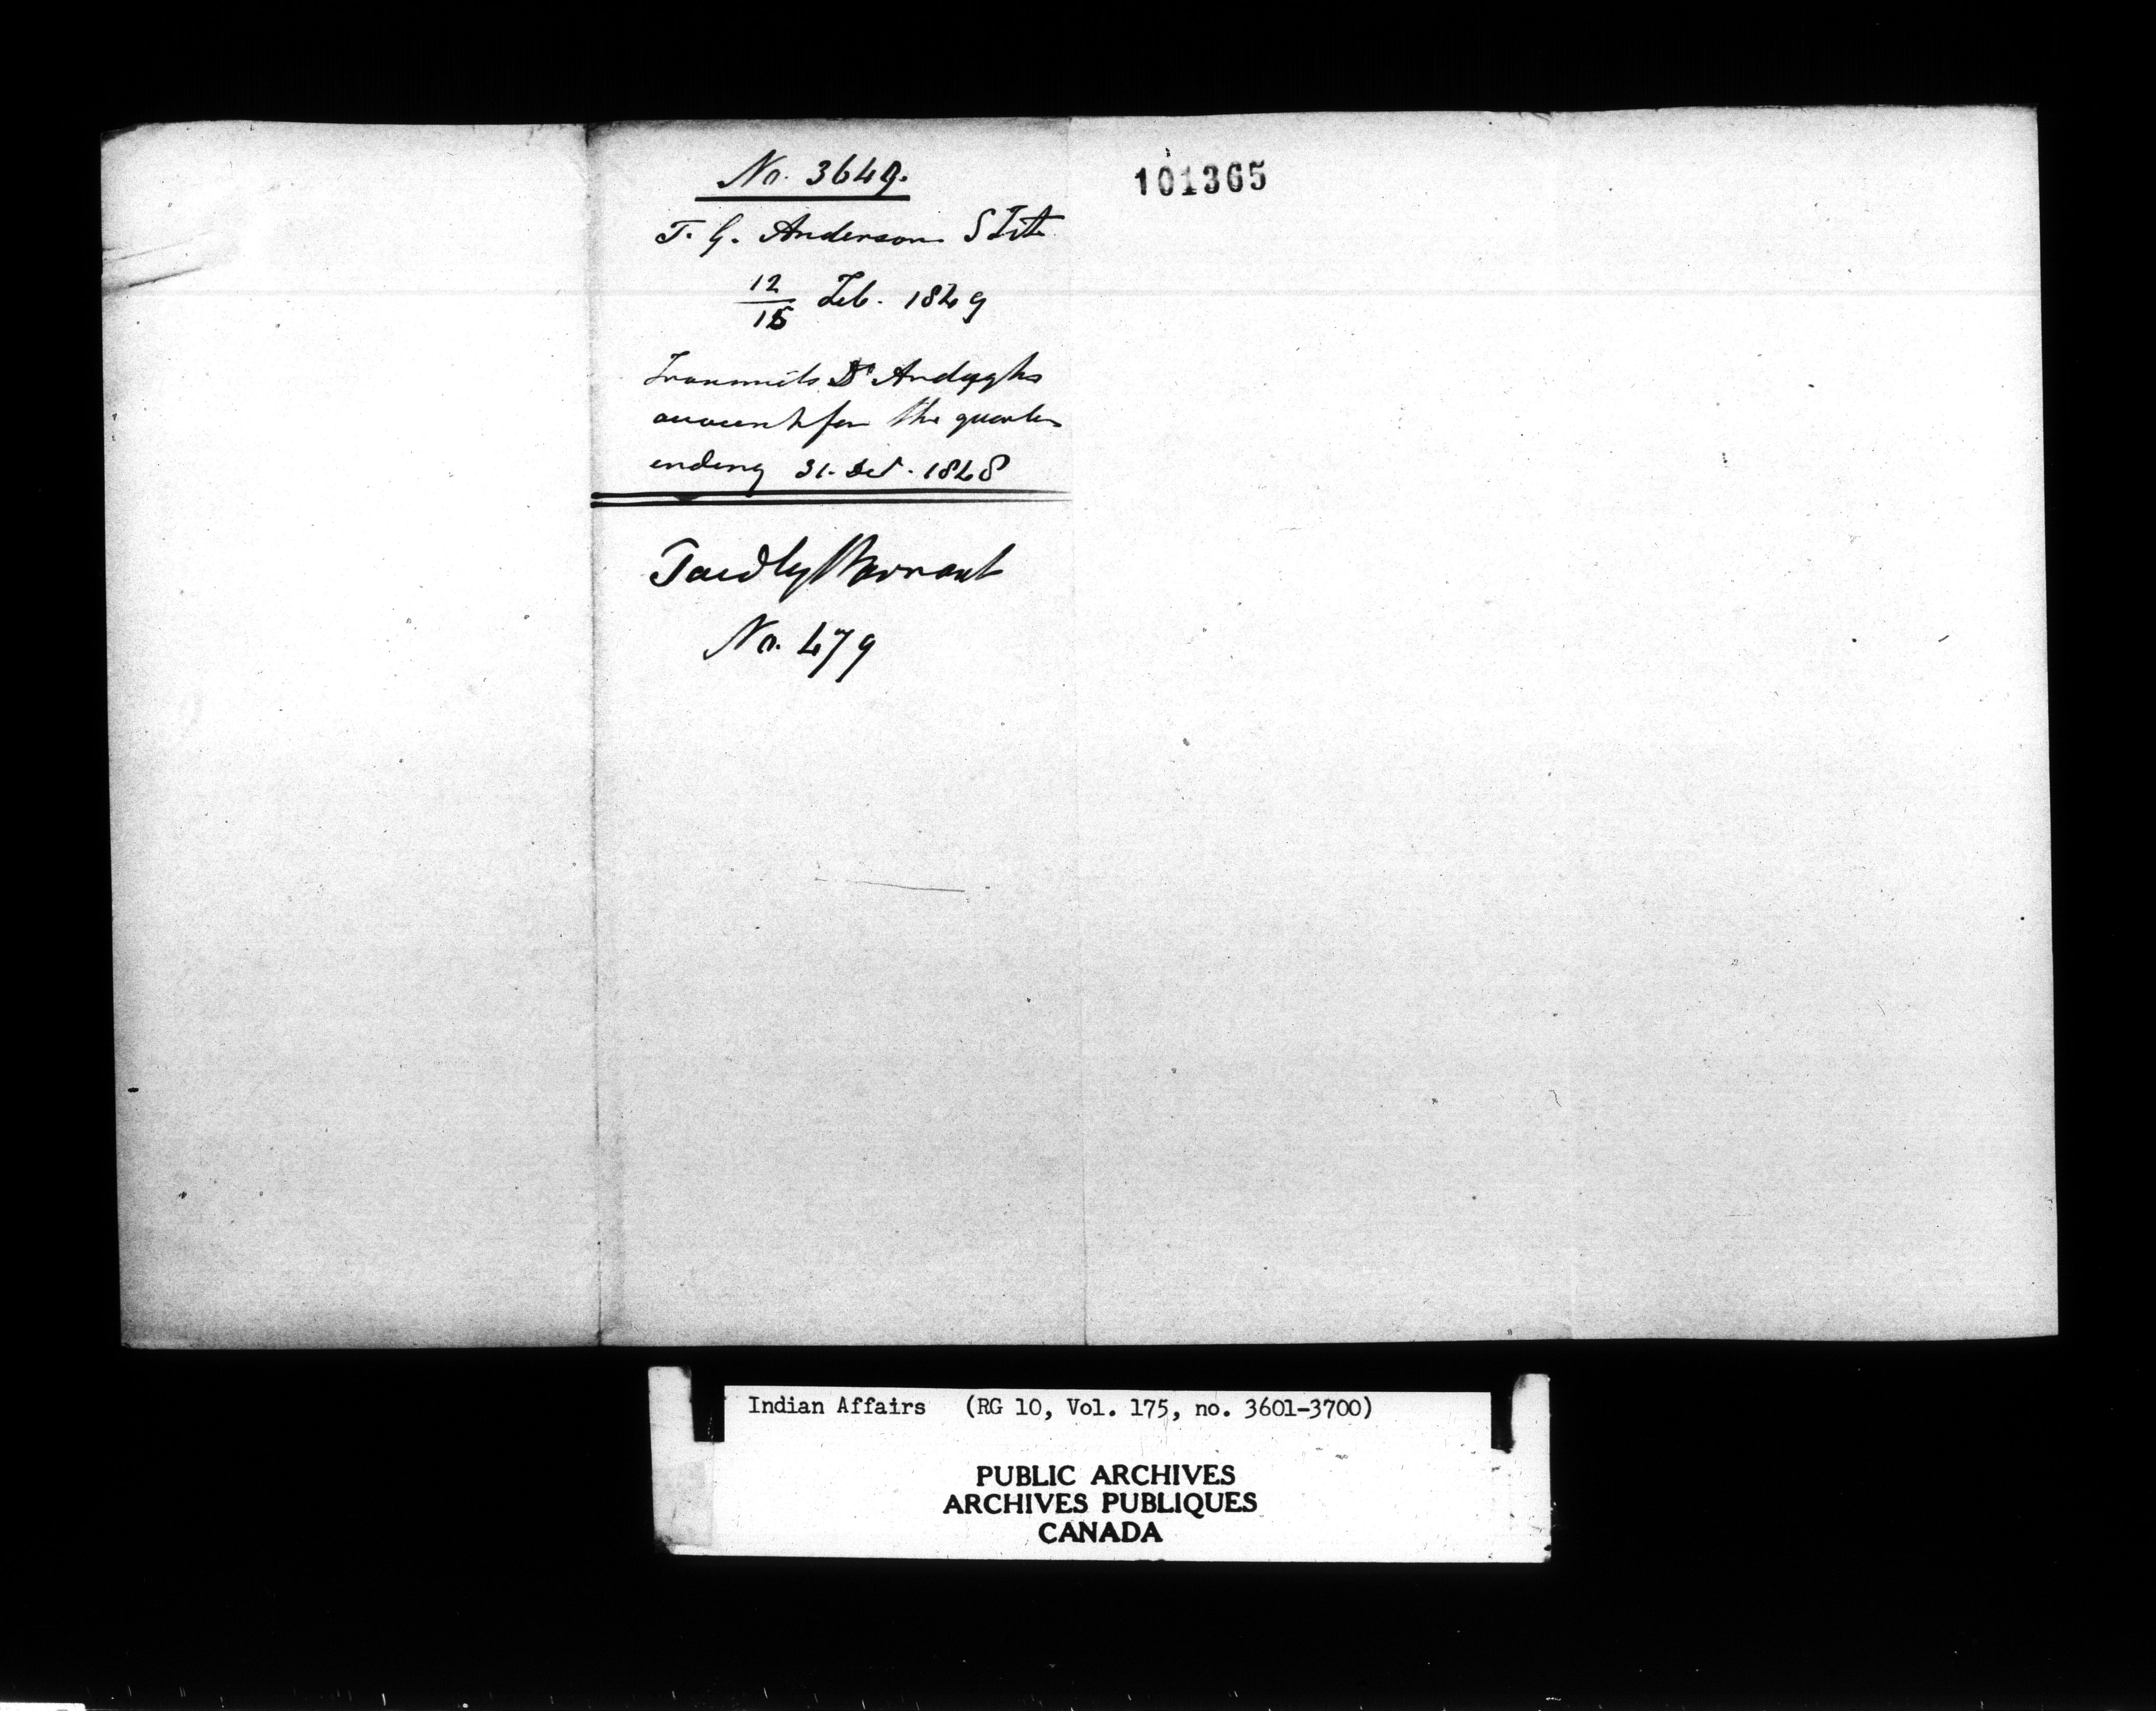 No. 3649.
T. G. Anderson
12/15 Feb. 1849
Transmits Dr Ardaghs
account for the quarter
ending 31. Dec. 1848
Paid by Warrant
No. 479
101365
Indian Affairs (RG 10, Vol. 175, no. 3601-3700)
PUBLIC ARCHIVES
ARCHIVES PUBLIQUES
CANADA